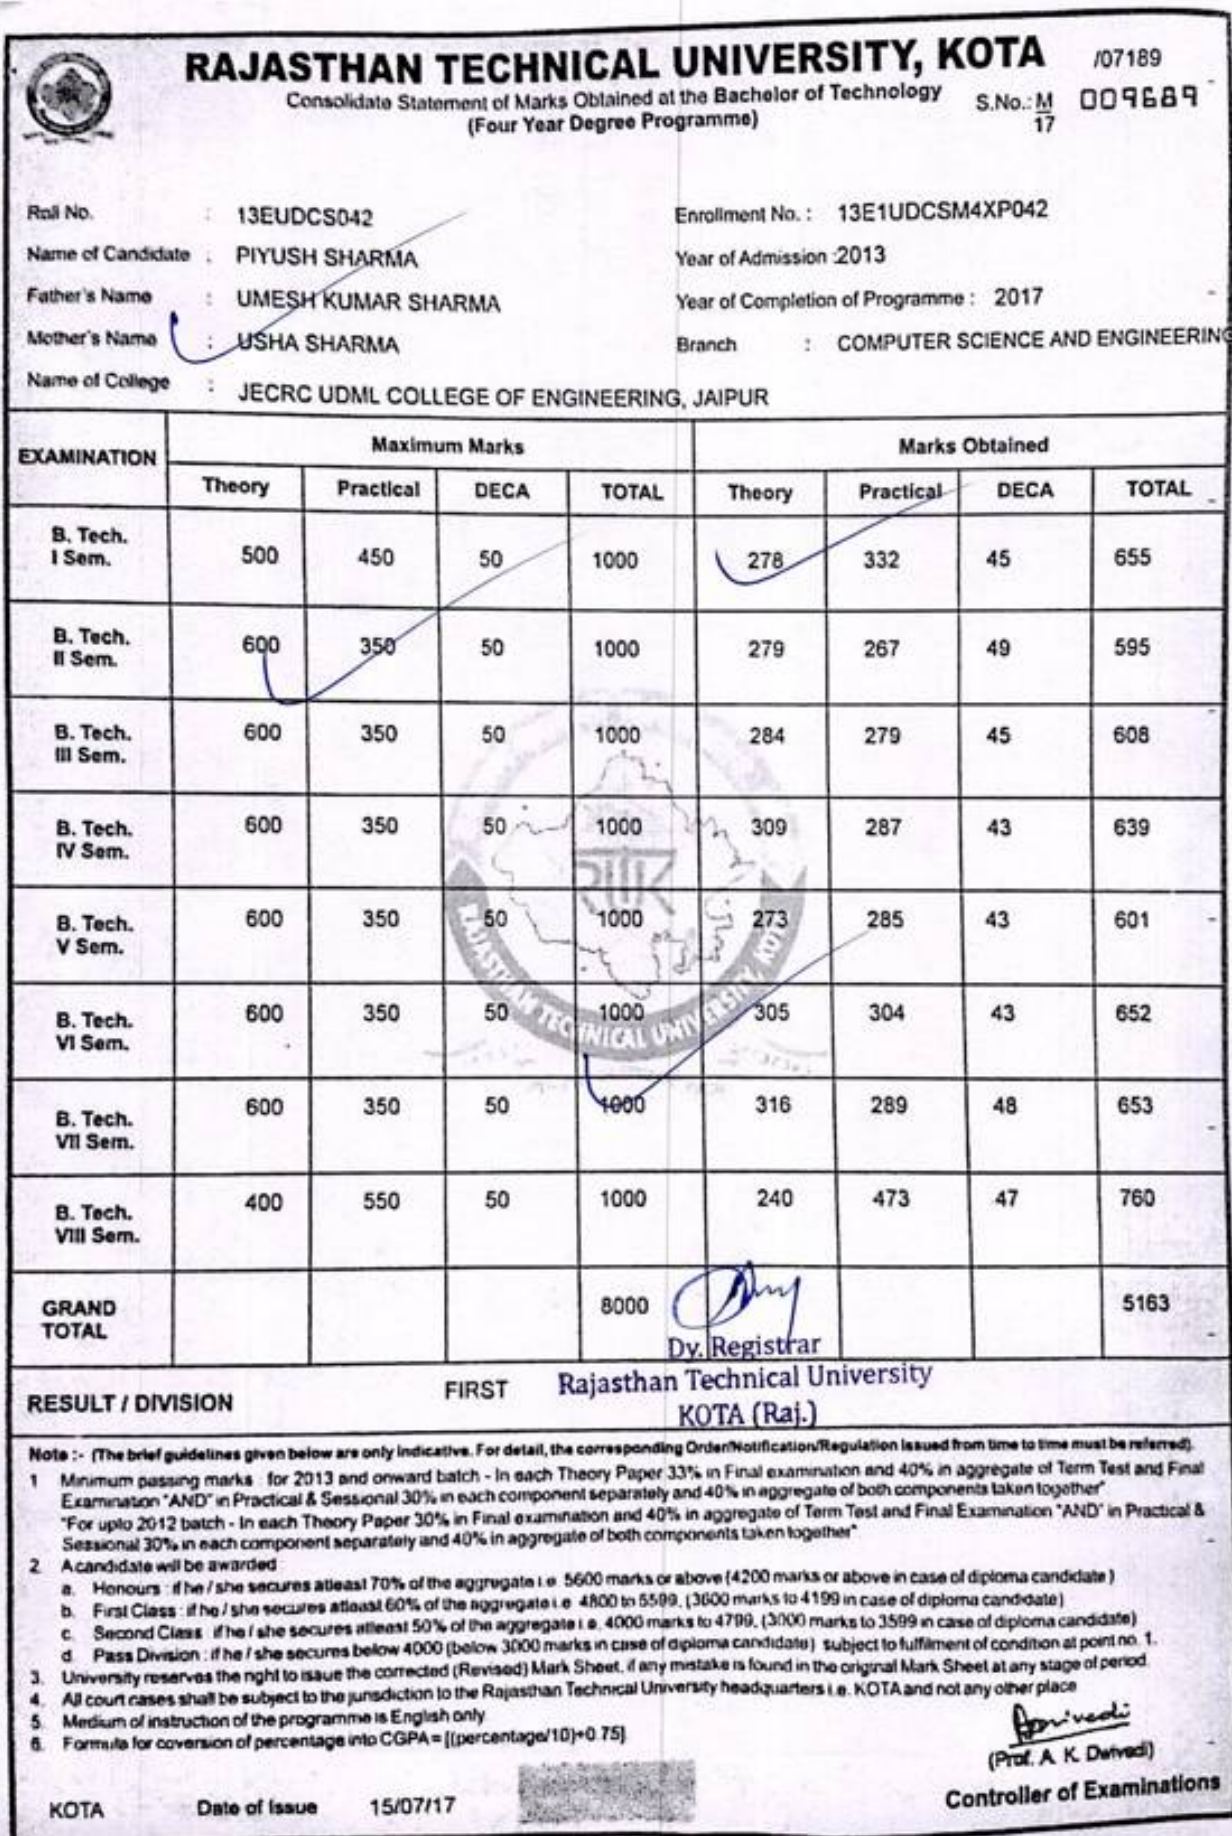 RAJASTHAN TECHNICAL UNIVERSITY, KOTA
/07189
Consolidate Statement of Marks Obtained at the Bachelor of Technology
(Four Year Degree Programme)
S.No.: M/17 009689
Roll No. : 13EUDCS042
Enrollment No. : 13E1UDCSM4XP042
Name of Candidate : PIYUSH SHARMA
Year of Admission :2013
Father's Name : UMESH KUMAR SHARMA
Year of Completion of Programme : 2017
Mother's Name : USHA SHARMA
Branch : COMPUTER SCIENCE AND ENGINEERING
Name of College : JECRC UDML COLLEGE OF ENGINEERING, JAIPUR
EXAMINATION Maximum Marks Marks Obtained
Theory Practical DECA TOTAL Theory Practical DECA TOTAL
B. Tech. I Sem. 500 450 50 1000 278 332 45 655
B. Tech. II Sem. 600 350 50 1000 279 267 49 595
B. Tech. III Sem. 600 350 50 1000 284 279 45 608
B. Tech. IV Sem. 600 350 50 1000 309 287 43 639
B. Tech. V Sem. 600 350 50 1000 273 285 43 601
B. Tech. VI Sem. 600 350 50 1000 305 304 43 652
B. Tech. VII Sem. 600 350 50 1000 316 289 48 653
B. Tech. VIII Sem. 400 550 50 1000 240 473 47 760
RAJASTHAN TECHNICAL UNIVERSITY, KOTA
GRAND TOTAL 8000 5163
Dy. Registrar
Rajasthan Technical University
KOTA (Raj.)
RESULT / DIVISION FIRST
Note :- (The brief guidelines given below are only indicative. For detail, the corresponding Order/Notification/Regulation issued from time to time must be referred).
1 Minimum passing marks : for 2013 and onward batch - In each Theory Paper 33% in Final examination and 40% in aggregate of Term Test and Final
Examination "AND" in Practical & Sessional 30% in each component separately and 40% in aggregate of both components taken together"
"For upto 2012 batch - In each Theory Paper 30% in Final examination and 40% in aggregate of Term Test and Final Examination "AND" in Practical &
Sessional 30% in each component separately and 40% in aggregate of both components taken together"
2. A candidate will be awarded :
a. Honours : if he / she secures atleast 70% of the aggregate i.e. 5600 marks or above (4200 marks or above in case of diploma candidate)
b. First Class : if he / she secures atleast 60% of the aggregate i.e. 4800 to 5599, (3600 marks to 4199 in case of diploma candidate)
c. Second Class : if he / she secures atleast 50% of the aggregate i.e. 4000 marks to 4799, (3000 marks to 3599 in case of diploma candidate)
d. Pass Division : if he / she secures below 4000 (below 3000 marks in case of diploma candidate) subject to fulfilment of condition at point no. 1.
3. University reserves the right to issue the corrected (Revised) Mark Sheet, if any mistake is found in the original Mark Sheet at any stage of period.
4. All court cases shall be subject to the jurisdiction to the Rajasthan Technical University headquarters i.e. KOTA and not any other place
5. Medium of instruction of the programme is English only
6. Formula for coversion of percentage into CGPA = [(percentage/10)+0.75]
(Prof. A. K. Dwivedi)
Controller of Examinations
KOTA Date of Issue 15/07/17